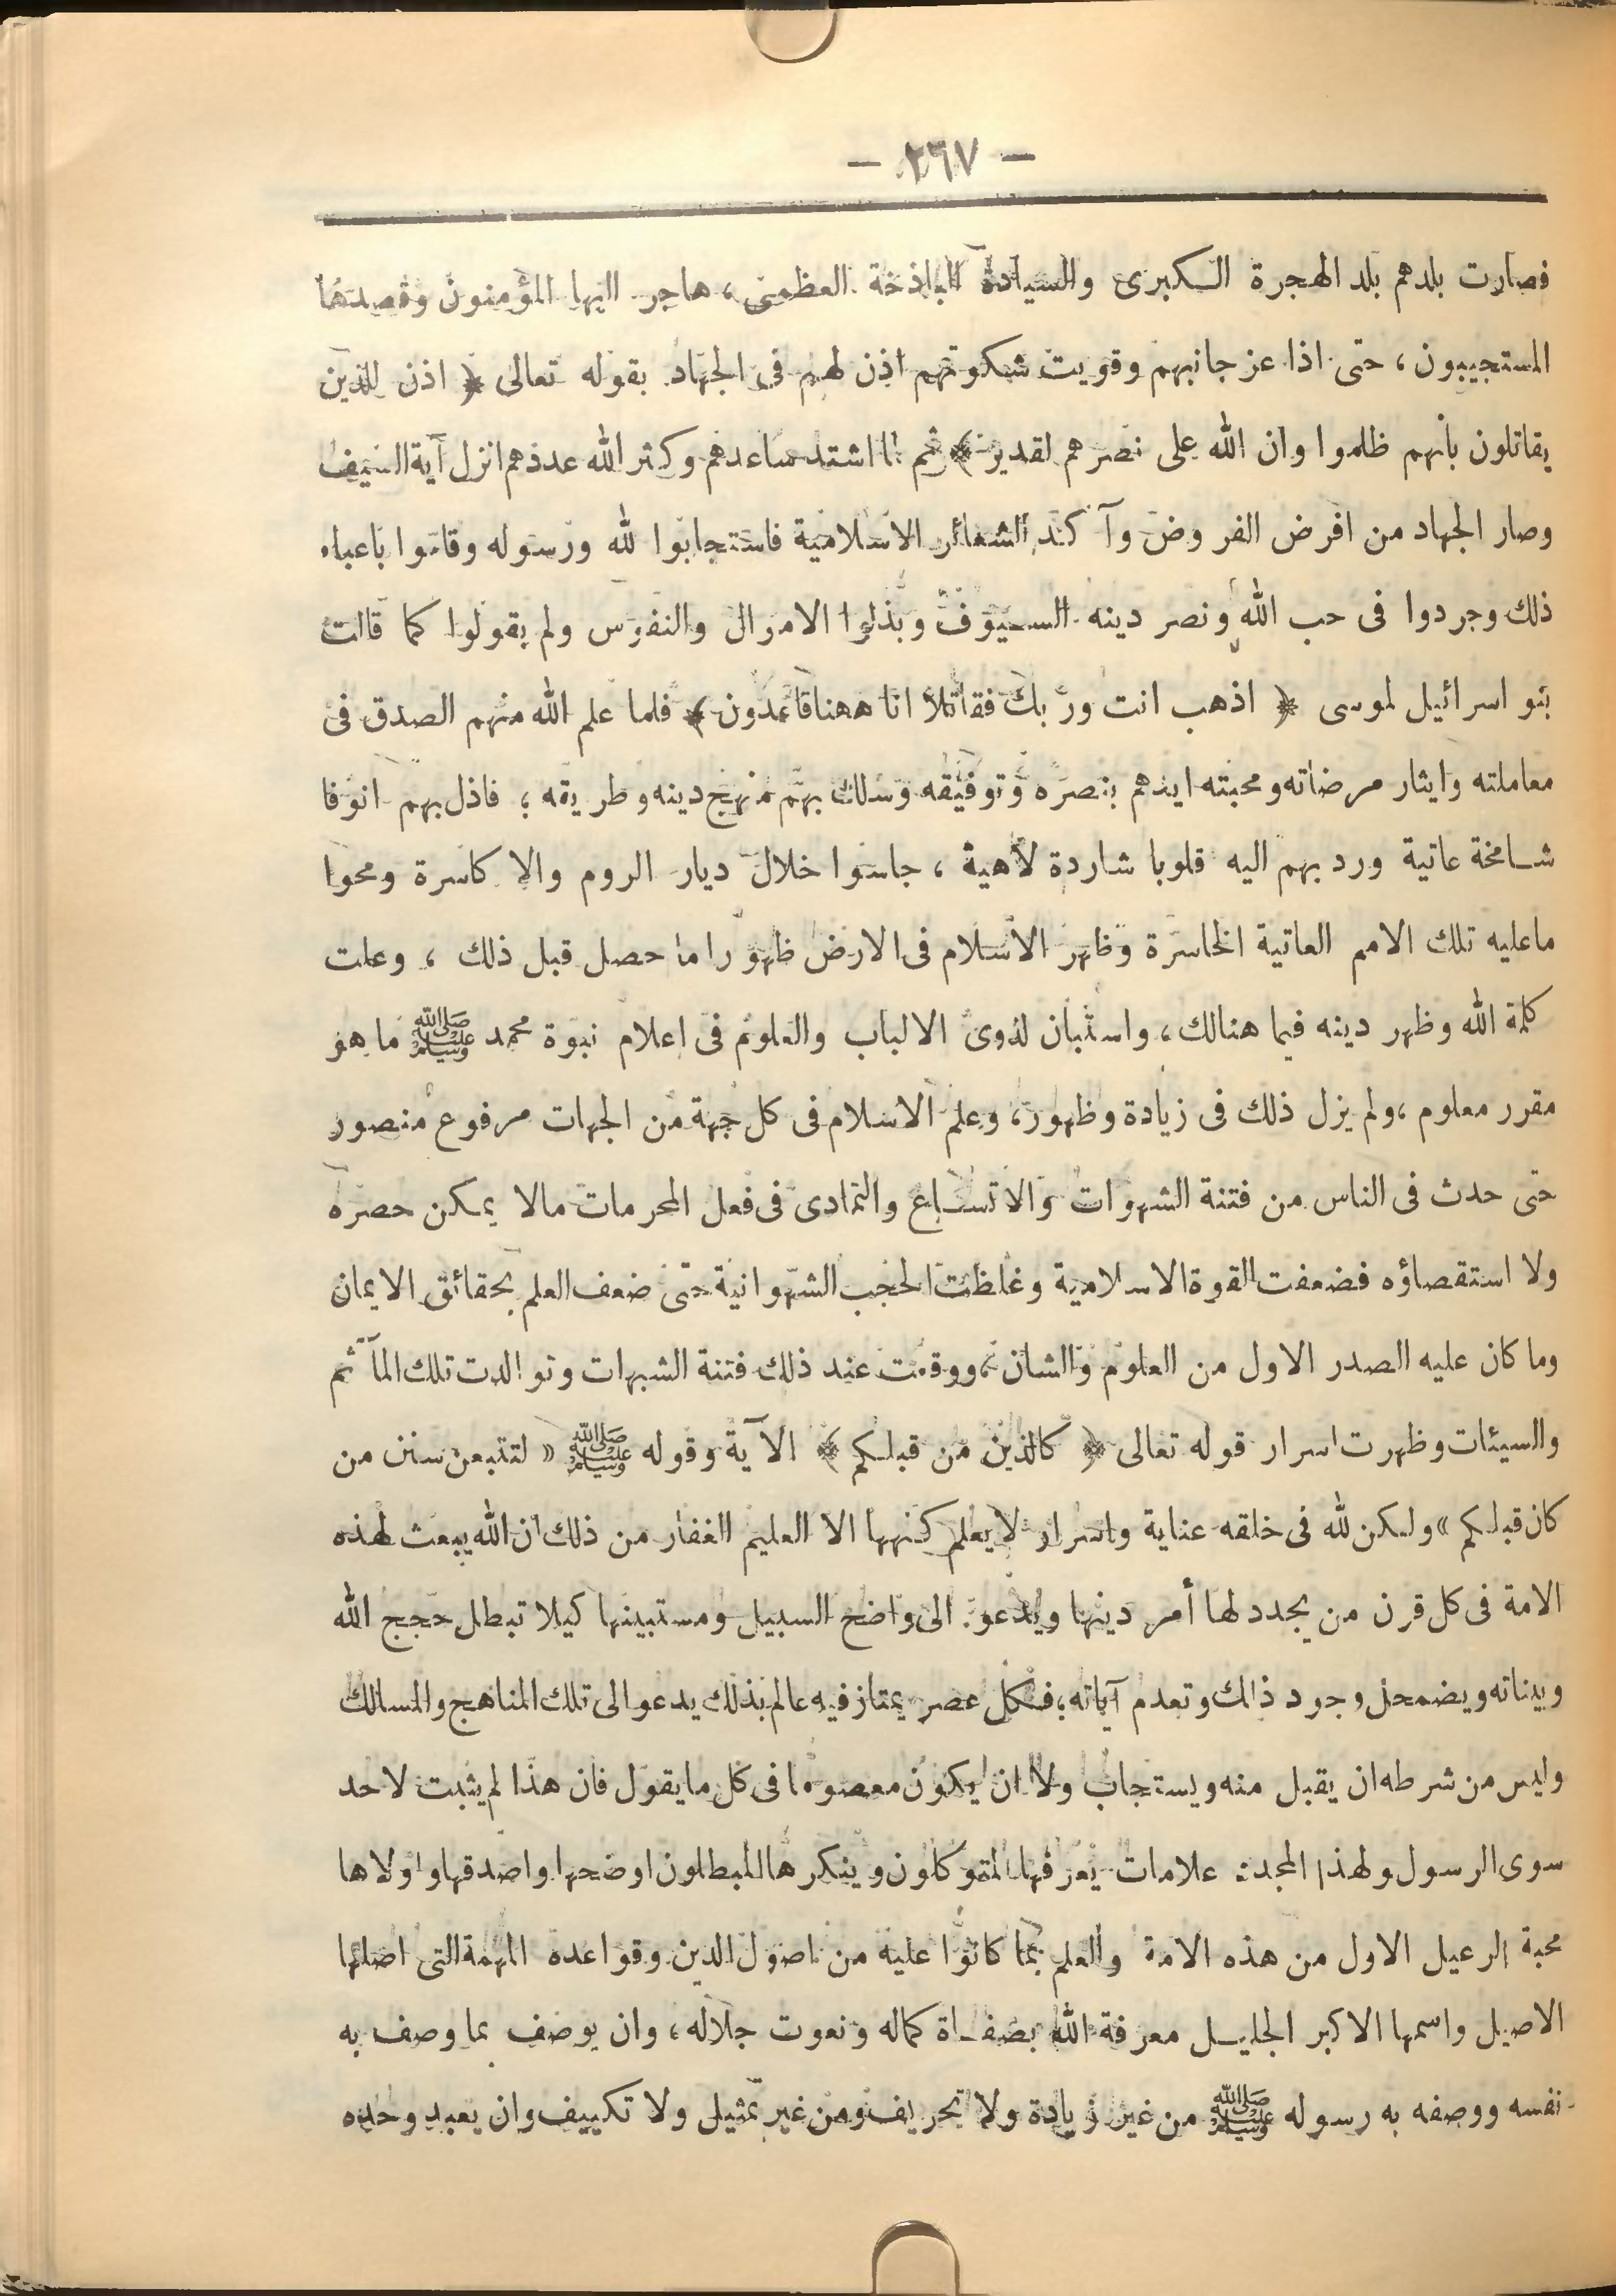 — ٢٦٧ —
فصارت بلدهم بلد الهجرة الكبرى والسيادة الباذخة العظمى، هاجر اليها المؤمنون وقصدها
المستجيبون، حتى اذا عز جانبهم وقويت شكوتهم اذن لهم فى الجهاد بقوله تعالى ﴿ اذن للذين
يقاتلون بأنهم ظلموا وان الله على نصرهم لقدير ﴾ ثم لما اشتد ساعدهم وكثر الله عددهم انزل آية السيف
وصار الجهاد من افرض الفروض وآكد الشعائر الاسلامية فاستجابوا لله ورسوله وقاموا باعباء
ذلك وجردوا فى حب الله ونصر دينه السيوف وبذلوا الاموال والنفوس ولم يقولوا كما قالت
بنو اسرائيل لموسى ﴿ اذهب انت وربك فقاتلا انا ههنا قاعدون ﴾ فلما علم الله منهم الصدق فى
معاملته وايثار مرضاته ومحبته ايدهم بنصره وتوفيقه وسلك بهم منهج دينه وطريقه ؛ فاذل بهم انوفا
شامخة عاتية ورد بهم اليه قلوبا شاردة لاهية ، جاسوا خلال ديار الروم والاكاسرة ومحوا
ماعليه تلك الامم العاتية الخاسرة وظهر الاسلام فى الارض ظهورا ما حصل قبل ذلك ، وعلت
كلمة الله وظهر دينه فيما هنالك، واستبان لذوى الالباب والعلوم فى اعلام نبوة محمد ﷺ ما هو
مقرر معلوم ،ولم يزل ذلك فى زيادة وظهور، وعلم الاسلام فى كل جهة من الجهات مرفوع منصور
حتى حدث فى الناس من فتنة الشهوات والاتساع والتمادى فى فعل المحرمات مالا يمكن حصره
ولا استقصاؤه فضعفت القوة الاسلامية وغلظت الحجب الشهوانية حتى ضعف العلم بحقائق الايمان
وما كان عليه الصدر الاول من العلوم والشان ، ووقعت عند ذلك فتنة الشبهات وتوالدت تلك المآثم
والسيئات وظهرت اسرار قوله تعالى ﴿ كالذين من قبلكم ﴾ الآية وقوله ﷺ « لتتبعن سنن من
كان قبلكم » ولكن لله فى خلقه عناية واسرار لا يعلم كنهها الا العليم الغفار من ذلك ان الله يبعث لهذه
الامة فى كل قرن من يجدد لها أمر دينها ويدعو الى واضح السبيل ومستبينها كيلا تبطل حجج الله
وبيناته ويضمحل وجود ذلك وتعدم آياته ؛ فكل عصر يمتاز فيه عالم بذلك يدعو الى تلك المناهج والمسالك
وليس من شرطه ان يقبل منه ويستجاب ولا ان يكون معصوما فى كل ما يقول فان هذا لم يثبت لاحد
سوى الرسول ولهذا المجدد علامات يعرفها المتوكلون وينكرها المبطلون اوضحها واصدقها واولاها
محبة الرعيل الاول من هذه الامة والعلم بما كانوا عليه من اصول الدين وقواعده المهمة التى اصلها
الاصيل واسمها الاكبر الجليل معرفة الله بصفاة كماله ونعوت جلاله، وان يوصف بما وصف به
نفسه ووصفه به رسوله ﷺ من غير زيادة ولا تحريف ومن غير تمثيل ولا تكييف وان يعبد وحده